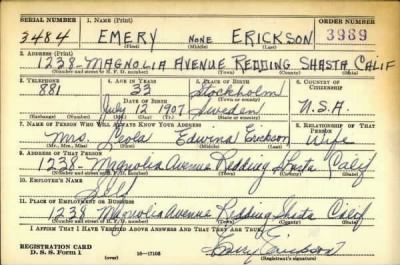 SERIAL NUMBER 1. NAME (Print) ORDER NUMBER
3484 EMERY NONE ERICKSON 3989
(First) (Middle) (Last)
2. ADDRESS (Print)
1238-MAGNOLIA AVENUE REDDING SHASTA CALIF
(Number and street or R. F. D. number) (Town) (County) (State)
3. TELEPHONE 4. AGE IN YEARS 5. PLACE OF BIRTH 6. COUNTRY OF CITIZENSHIP
881 33 Stockholm
DATE OF BIRTH (Town or county)
July 12 1907 Sweden U.S.A.
(Exchange) (Number) (Mo.) (Day) (Yr.) (State or country)
7. NAME OF PERSON WHO WILL ALWAYS KNOW YOUR ADDRESS 8. RELATIONSHIP OF THAT PERSON
Mrs. Leola Edwina Erickson Wife
(Mr., Mrs., Miss) (First) (Middle) (Last)
9. ADDRESS OF THAT PERSON
1238-Magnolia Avenue Redding Shasta Calif
(Number and street or R. F. D. number) (Town) (County) (State)
10. EMPLOYER'S NAME
Self
11. PLACE OF EMPLOYMENT OR BUSINESS
1238 Magnolia Avenue Redding Shasta Calif
(Number and street or R. F. D. number) (Town) (County) (State)
I AFFIRM THAT I HAVE VERIFIED ABOVE ANSWERS AND THAT THEY ARE TRUE.
REGISTRATION CARD
D. S. S. Form 1 16-17105 Emery Erickson
(Registrant's signature)